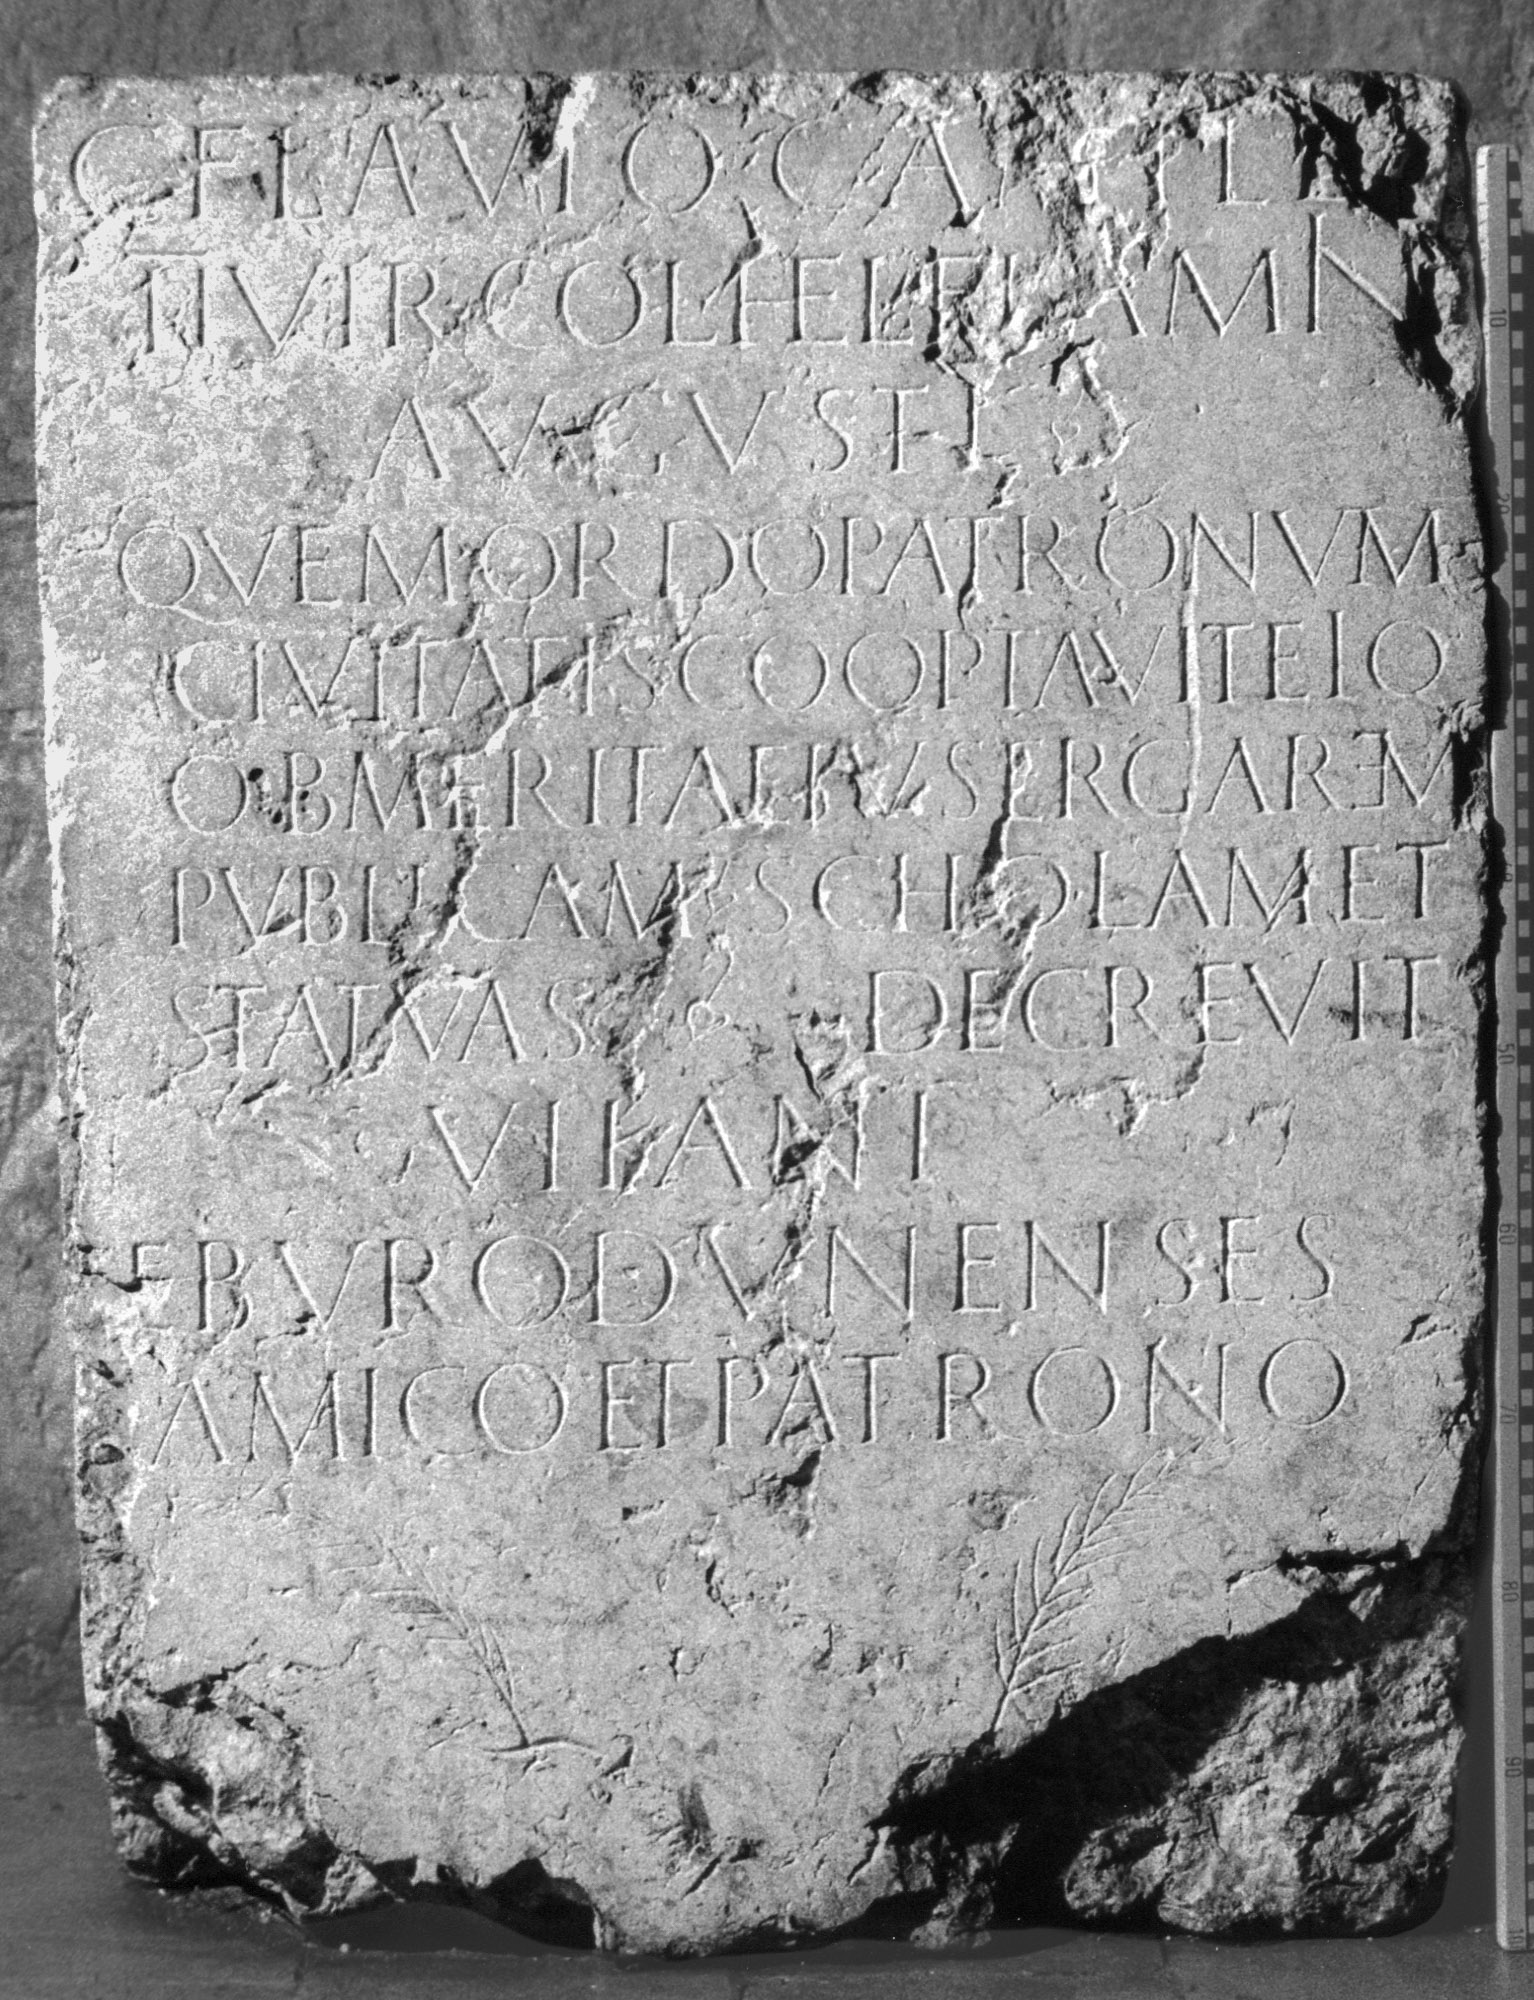 C FLAVIO
IIVIR COL HEL FLAMIN
AVGVSTI
QVEM ORDO PATRONVM
CIVITATIS COOPTAVIT EIQ
OB MERITA EIVS ERGA REM
PVBLICAM SCHOLAM ET
STATVAS DECREVIT
VIKANI
EBVRODVNENSES
AMICO ET PATRONO